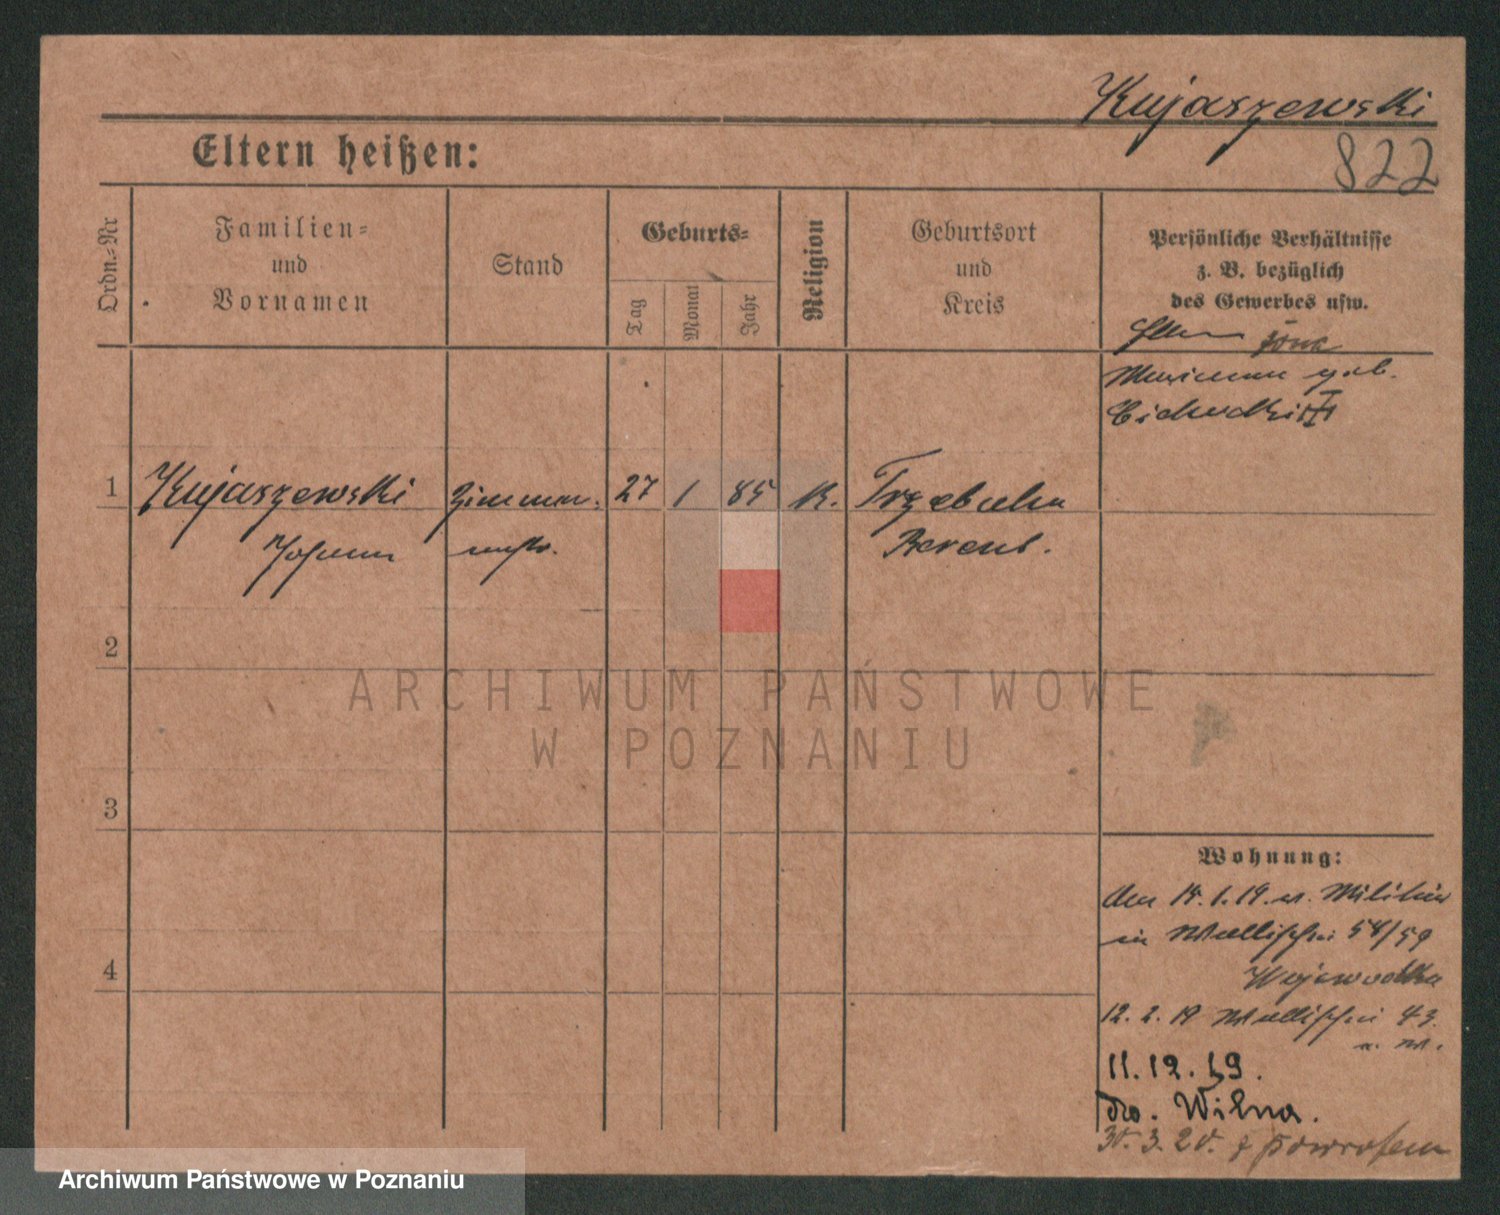 Kujaszewski
822
Eltern heißen:
Ordn.-Nr
Familien-
und
Vornamen
Stand
Geburts-
Tag
Monat
Jahr
Religion
Geburtsort
und
Kreis
Persönliche Verhältnisse
z. B. bezüglich
des Gewerbes usw.
geb.
1 Kujaszewski Zimmer- 27 1 85 K.
Johann mstr. Berent.
2
3
4
Wohnung:
14.1.19. v. Militär
in Wallischei 58/59
12. 2. 19 Wallischei 43.
11.12.19.
do. Wilna.
30. 3. 20. z powrotem
ARCHIWUM PAŃSTWOWE
W POZNANIU
Archiwum Państwowe w Poznaniu